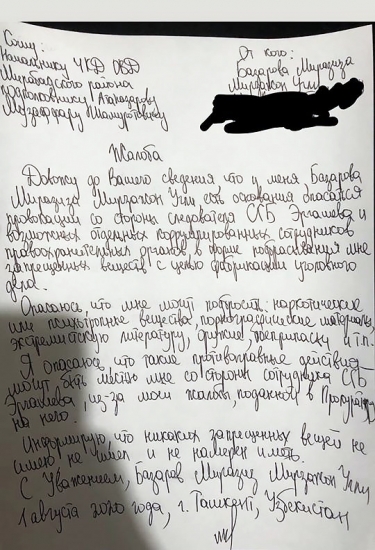 Кому:
Начальнику УКД ОВД
Мирабадского района
От кого:
Базарова Миразиза
Мирзажон Угли
Жалоба
Довожу до Вашего сведения что у меня, Базарова
Миразиза Мирзажон Угли есть основания опасатся
провокации со стороны следователя СГБ Эргашева и
возможных отдельных коррумпированных сотрудников
правоохранительных органов в форме подбрасывания мне
запрещённых веществ с целью фабрикации уголовного
дела.
Опасаюсь, что мне могут подбросить: наркотические
или психотропные вещества, порнографические материалы,
экстремистскую литературу, оружие, боеприпасы и т.п.
Я опасаюсь, что такие противоправные действия
могут быть местью мне со стороны сотрудника СГБ
Эргашева, из-за моей жалобы, поданной в Прокуратуру
на него.
Информирую, что никаких запрещенных вещей не
имею не имел и не намерен иметь.
С Уважением, Базаров Миразиз Мирзажон Угли
1 августа 2020 года, г. Ташкент, Узбекистан